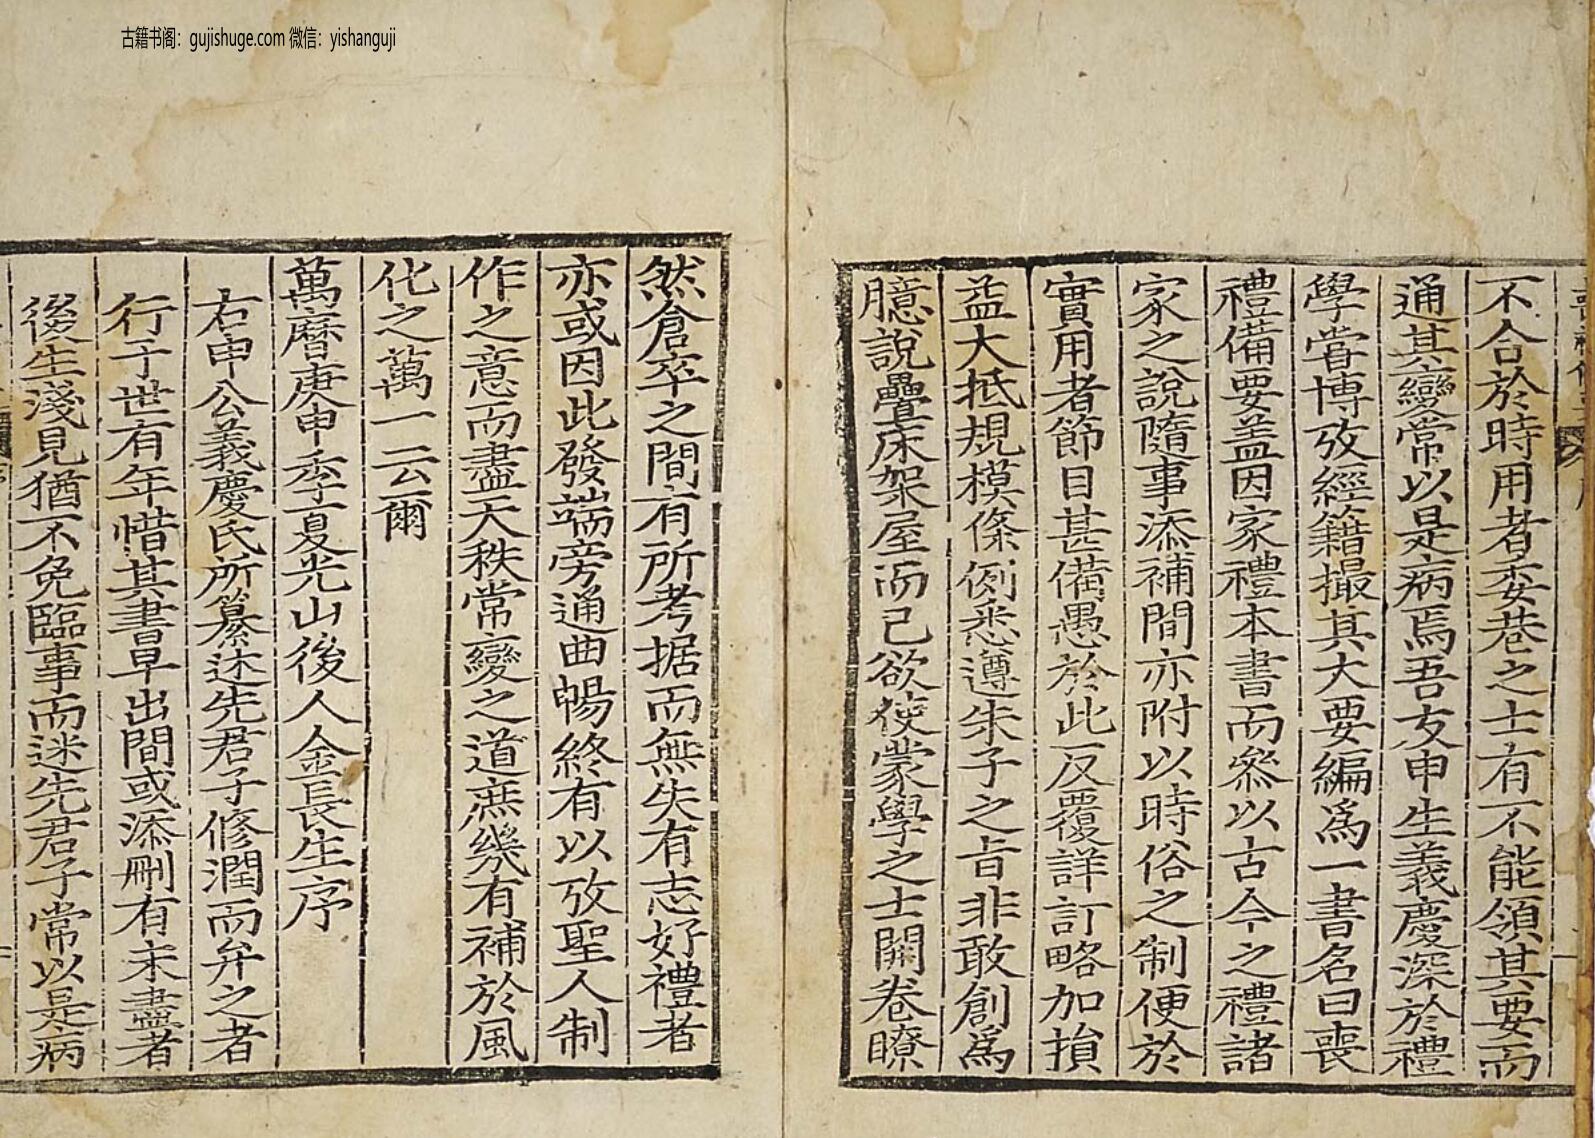 古籍书阁：gujishuge.com 微信：yishanguji
不合於時用者委巷之士有不能領其要而
通其變常以是病焉吾友申生義慶深於禮
學嘗博攷經籍撮其大要編爲一書名曰喪
禮備要盖因家禮本書而叅以古今之禮諸
家之說隨事添補間亦附以時俗之制便於
實用者節目甚備愚於此反覆詳訂略加損
益大抵規模條例悉遵朱子之旨非敢創爲
臆說疊床架屋而已欲使蒙學之士開卷瞭
然倉卒之間有所考据而無失有志好禮者
亦或因此發端旁通曲暢終有以攷聖人制
作之意而盡天秩常變之道庶幾有補於風
化之萬一云爾
萬曆庚申季夏光山後人金長生序
右申公義慶氏所纂述先君子修潤而弁之者
行于世有年惜其書早出間或添刪有未盡者
後生淺見猶不免臨事而迷先君子常以是病